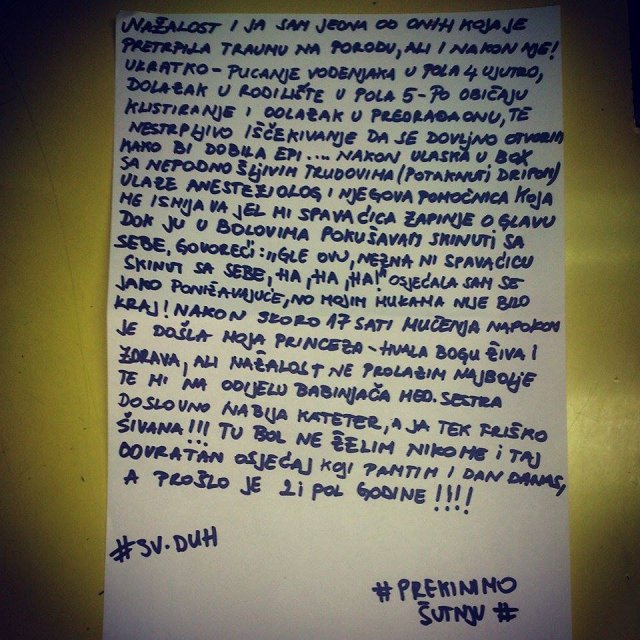 NAŽALOST I JA SAM JEDNA OD ONIH KOJA JE
PRETRPILA TRAUMU NA PORODU, ALI I NAKON NJE!
UKRATKO - PUCANJE VODENJAKA U POLA 4 UJUTRO,
DOLAZAK U RODILIŠTE U POLA 5 - PO OBIČAJU
KLISTIRANJE I ODLAZAK U PREDRAĐAONU, TE
NESTRPLJIVO IŠČEKIVANJE DA SE DOVLJNO OTVORIM
KAKO BI DOBILA EPI... NAKON ULASKA U BOX
SA NEPODNOŠLJIVIM TRUDOVIMA (POTAKNUTI DRIPOM)
ULAZE ANESTEZIOLOG I NJEGOVA POMOĆNICA KOJA
ME ISMIJAVA JEL MI SPAVAĆICA ZAPINJE O GLAVU
DOK JU U BOLOVIMA POKUŠAVAM SKINUTI SA
SEBE, GOVOREĆI: "GLE OVU, NEZNA NI SPAVAĆICU
SKINUT SA SEBE, HA, HA, HA!" OSJEĆALA SAM SE
JAKO PONIŽAVAJUĆE, NO MOJIM MUKAMA NIJE BILO
KRAJ! NAKON SKORO 17 SATI MUČENJA NAPOKON
JE DOŠLA MOJA PRINCEZA - HVALA BOGU ŽIVA I
ZDRAVA, ALI NAŽALOST NE PROLAZIM NAJBOLJE
TE MI NA ODJELU BABINJAČA MED. SESTRA
DOSLOVNO NABIJA KATETER, A JA TEK FRIŠKO
ŠIVANA!!! TU BOL NE ŽELIM NIKOME I TAJ
ODVRATAN OSJEĆAJ KOJI PAMTIM I DAN DANAS,
A PROŠLO JE 2 I POL GODINE!!!!
#SV.DUH
#PREKINIMO
ŠUTNJU#